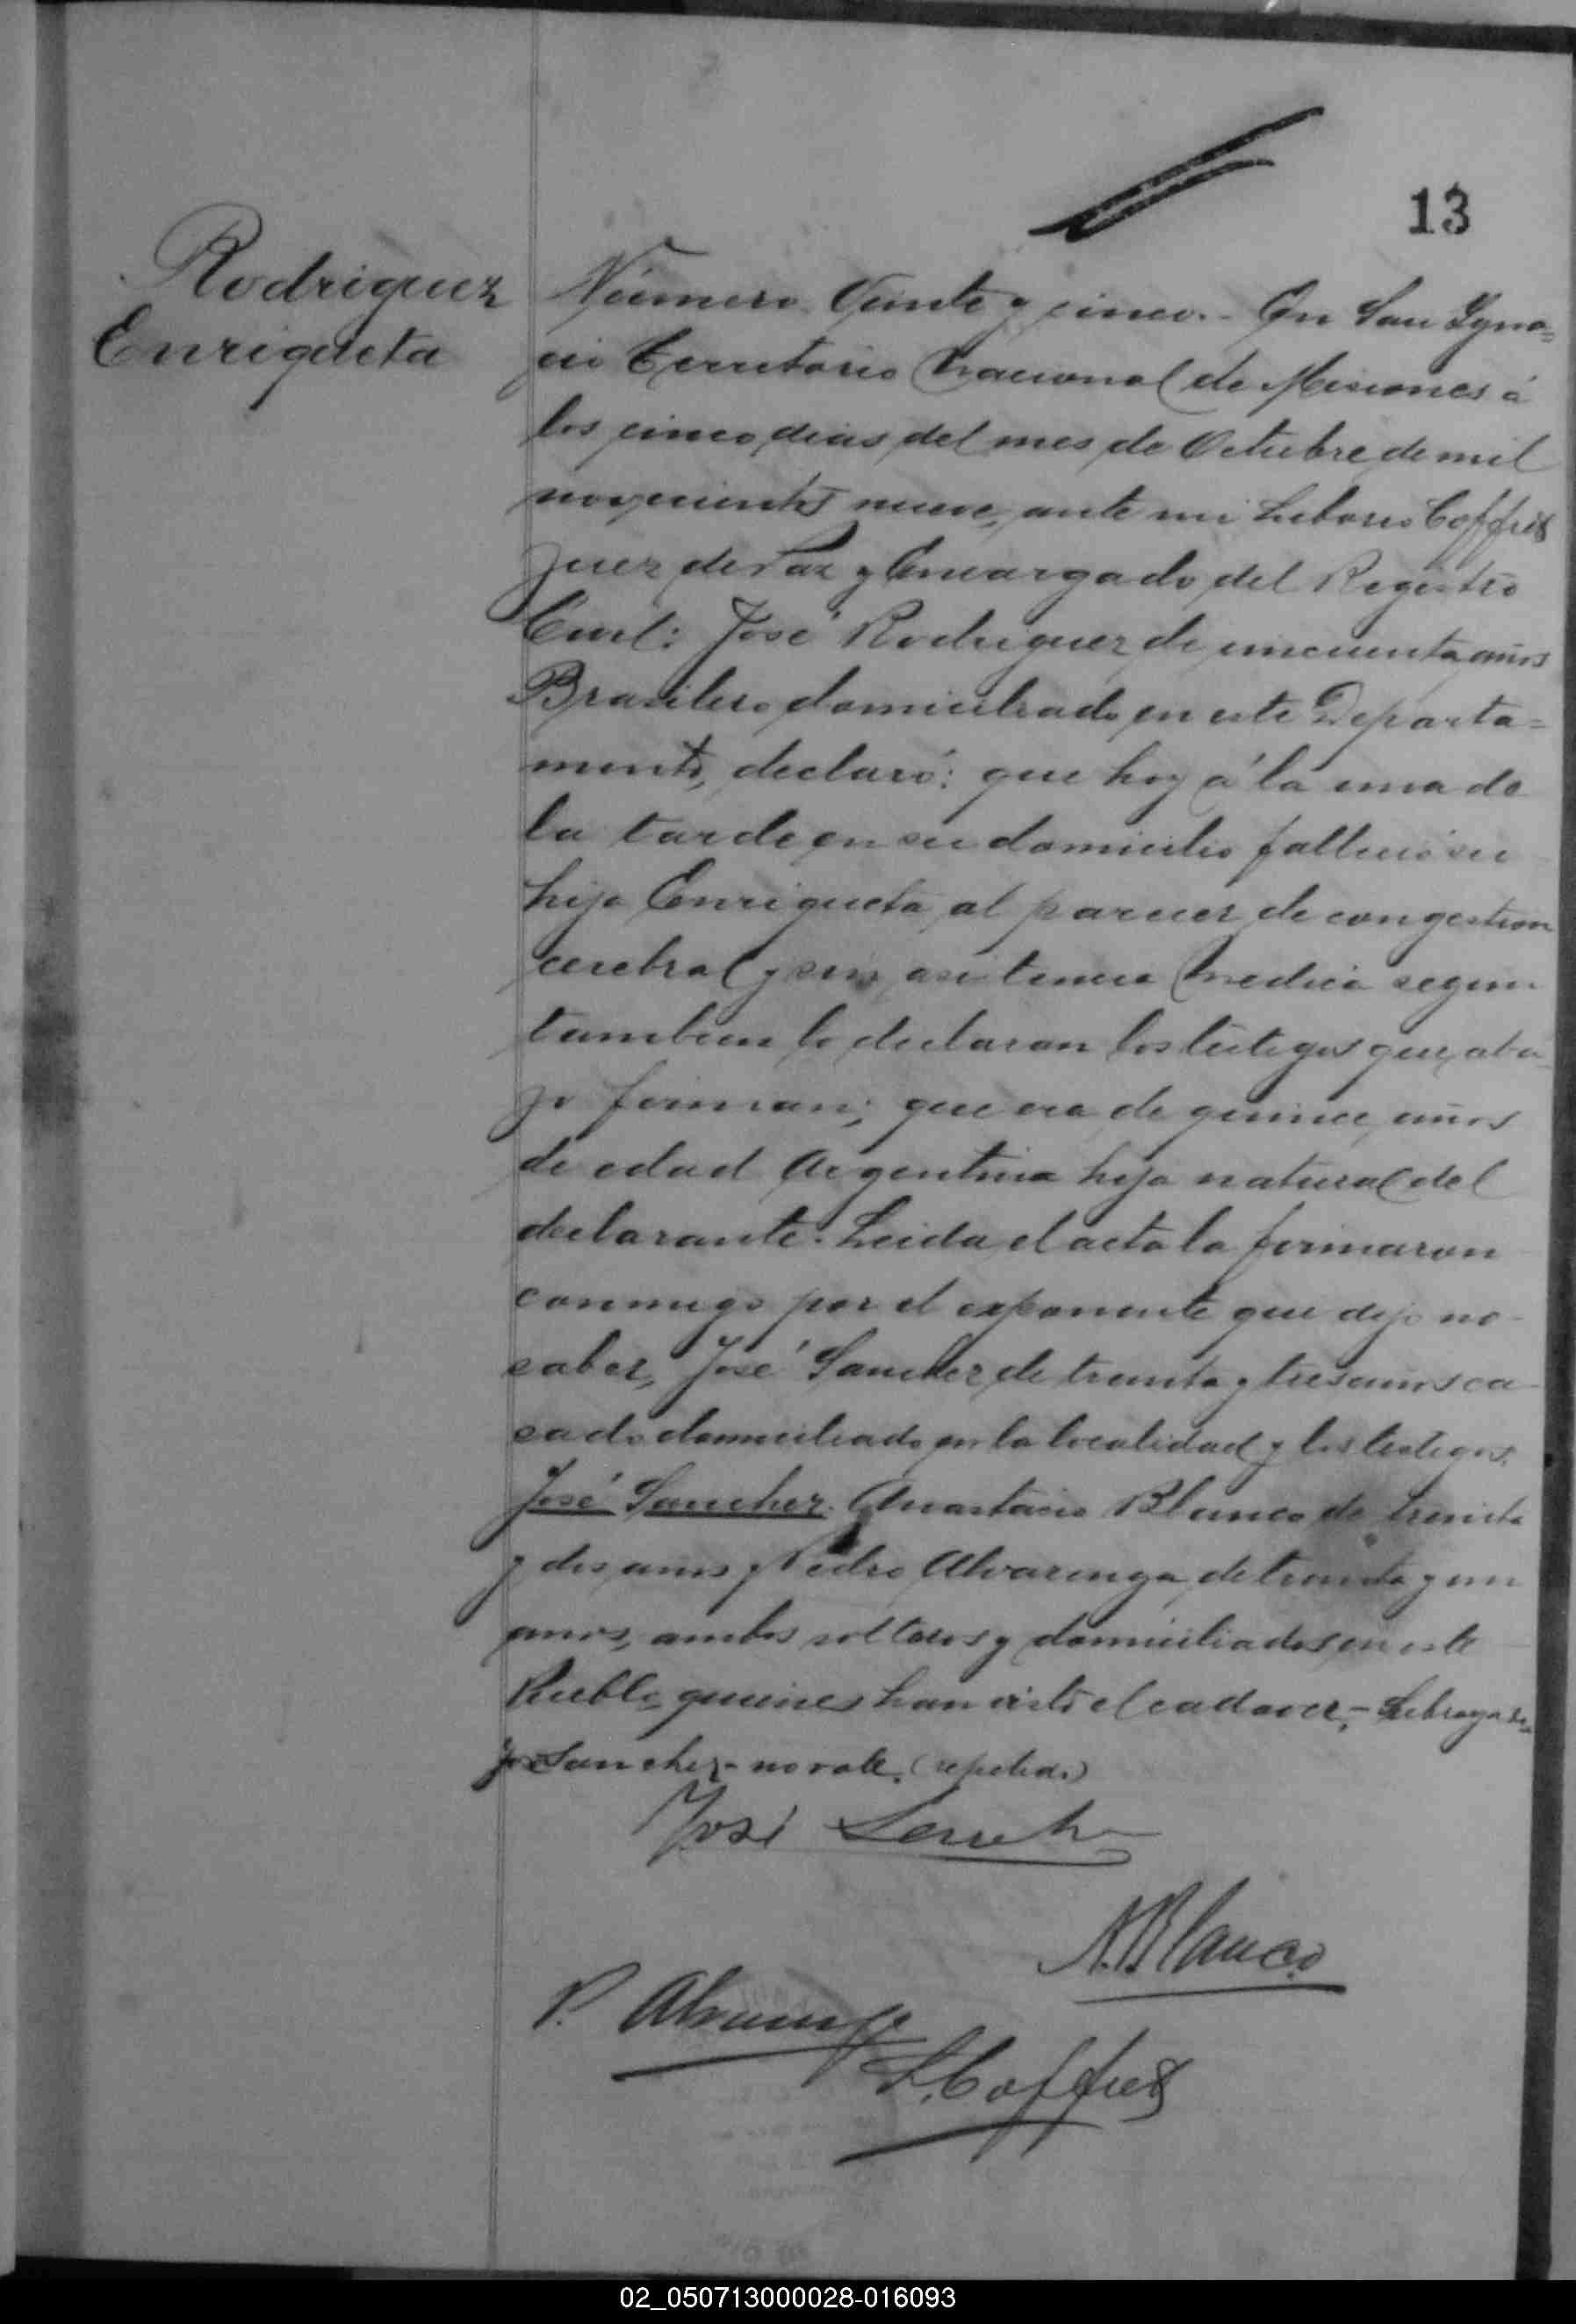 13
Rodriguez
Enriqueta
Número Veinte y cinco.- En San Ygna=
cio Territorio Nacional de Misiones á
los cinco dias del mes de Octubre de mil
novecientos nueve, ante mi Liborio Coffres
Juez de Paz y Encargado del Registro
Civil: José Rodriguez de cincuenta años
Brasilero domiciliado en este Departa=
mento, declaró: que hoy á la una de
la tarde en su domicilio falleció su
hija Enriqueta al parecer de congestion
cerebral y sin asistencia medica segun
tambien lo declaran los testigos que aba-
jo firman; que era de quince años
de edad Argentina hija natural del
declarante. Leida el acta la firmaron
conmigo por el exponente que dijo no
saber, José Sanchez de treinta y tres años ca-
sado domiciliado en la localidad y los testigos
José Sanchez. Anastacio Blanco de treinta
y dos años y Pedro Alvarenga de treinta y un
anos, ambos solteros y domiciliados en este
Pueblo quienes han visto el cadaver,-
José Sanchez- no vale. (repetido)
José
A. Blanco
P. Alvarenga
L. Coffres
02_050713000028-016093